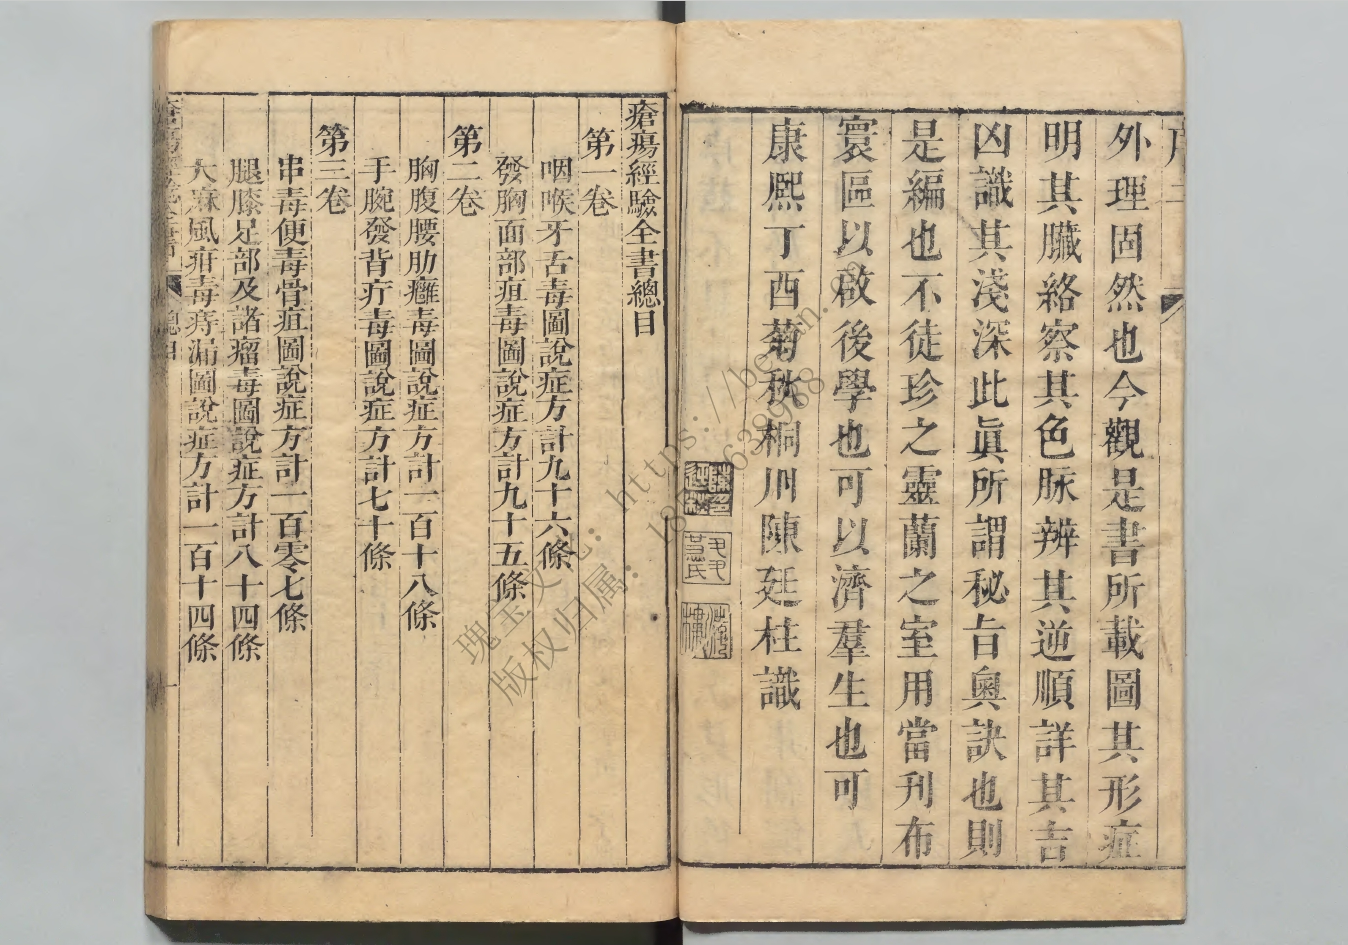 外理固然也今觀是書所載圖其形症
明其臟絡察其色脉辨其逆順詳其吉
凶識其淺深此眞所謂秘旨奧訣也則
是編也不徒珍之靈蘭之室用當刋布
寰區以啟後學也可以濟羣生也可
康熙丁酉菊秋桐川陳廷柱識
瘡瘍經驗全書總目
第一卷
咽喉牙舌毒圖說症方計九十六條
發胸面部疽毒圖說症方計九十五條
第二卷
胸腹腰肋癰毒圖說症方計一百十八條
手腕發背疔毒圖說症方計七十條
第三卷
串毒便毒骨疽圖說症方計一百零七條
腿膝足部及諸瘤毒圖說症方計八十四條
大麻風疳毒痔漏圖說症方計一百十四條
瑰宝文化：https://beijan.c
版权归属：18
638968